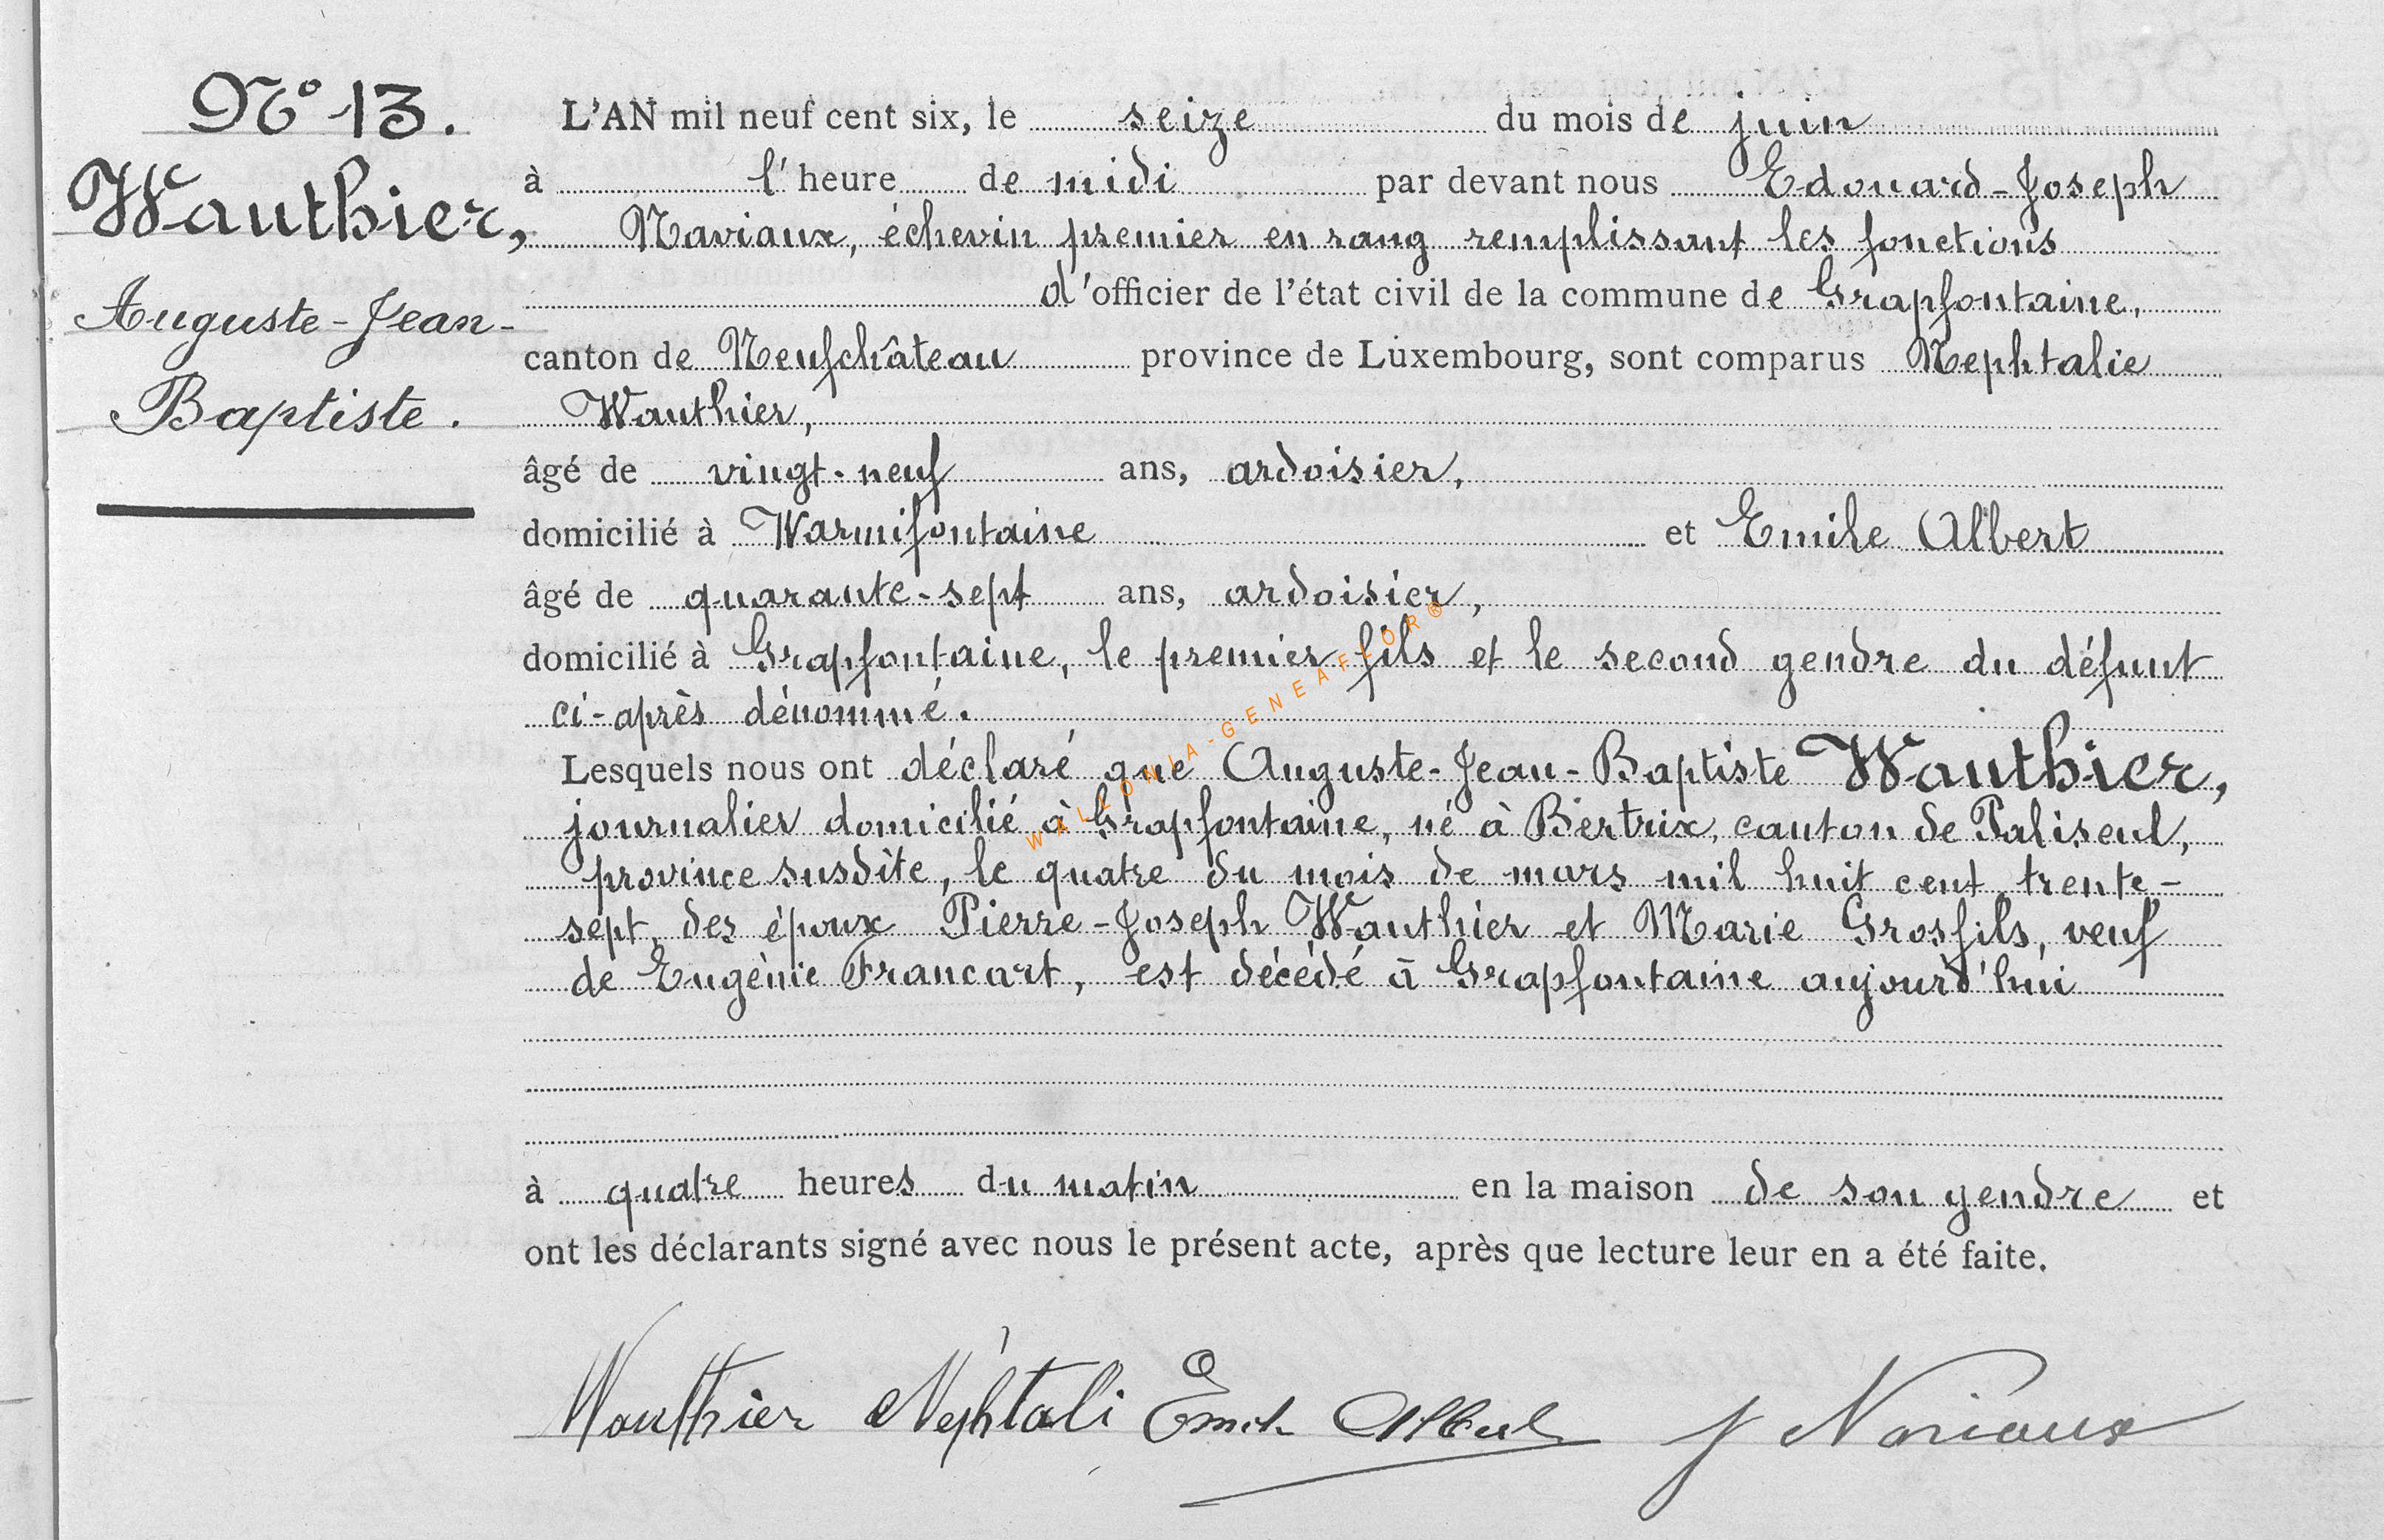 N° 13.
Wauthier,
Auguste-Jean-
Baptiste.
L'AN mil neuf cent six, le seize du mois de juin
à l'heure de midi par devant nous Edouard-Joseph
Naviaux, échevin premier en rang remplissant les fonctions
d'officier de l'état civil de la commune de Grapfontaine,
canton de Neufchâteau province de Luxembourg, sont comparus Nephtalie
Wauthier,
âgé de vingt-neuf ans, ardoisier,
domicilié à Warmifontaine et Emile Albert
âgé de quarante-sept ans, ardoisier,
domicilié à Grapfontaine, le premier fils et le second gendre du défunt
ci-après dénommé.
Lesquels nous ont déclaré que Auguste-Jean-Baptiste Wauthier,
journalier domicilié à Grapfontaine, né à Bertrix, canton de Paliseul,
province susdite, le quatre du mois de mars mil huit cent trente-
sept, des époux Pierre-Joseph Wauthier et Marie Grosfils, veuf
de Eugènie Francart, est décédé à Grapfontaine aujourd'hui
à quatre heures du matin en la maison de son gendre et
ont les déclarants signé avec nous le présent acte, après que lecture leur en a été faite.
Wauthier Nephtali Emile Albert J Naviaux
WALLONIA-GENEAFLOR®